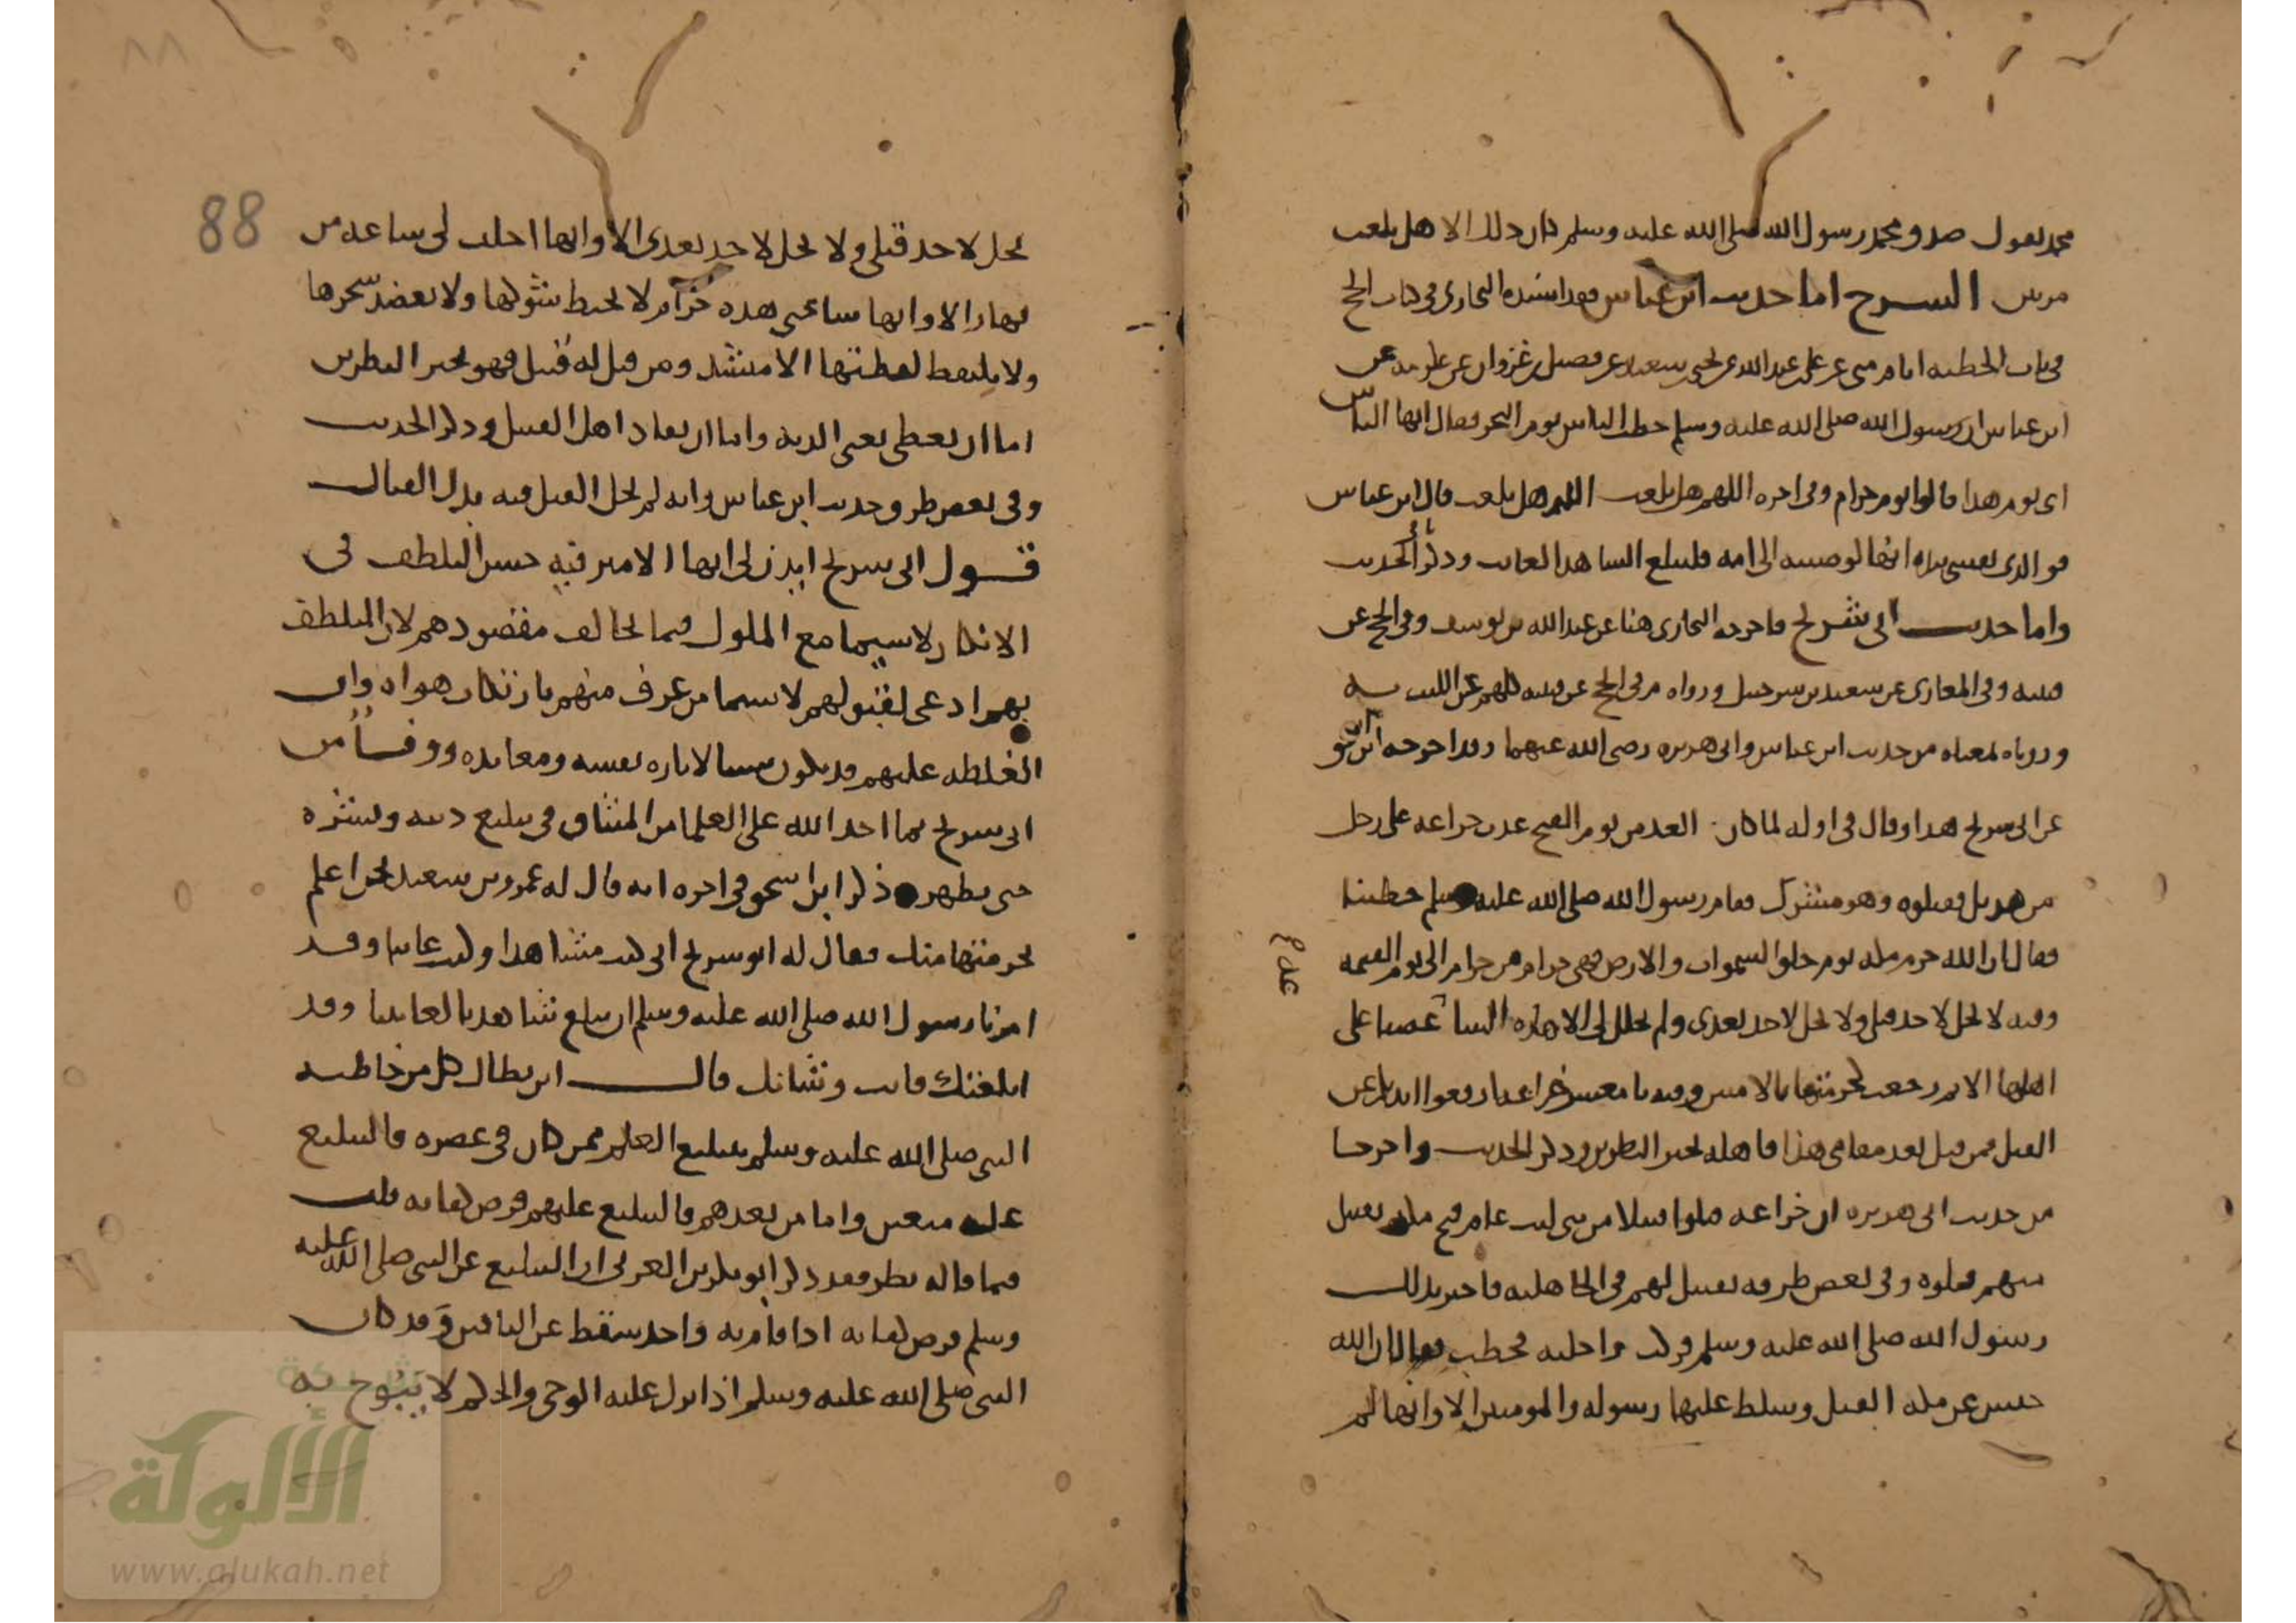 محمد يقول صدق محمد رسول الله صلى الله عليه وسلم كان ذلك الا هل بلغت
مرتين الشرح اما حديث ابن عباس فقد اسنده البخاري في كتاب الحج
في باب الخطبة ايام منى عن علي بن عبد الله عن يحيى بن سعيد عن فضيل بن غزوان عن عكرمة عن
ابن عباس ان رسول الله صلى الله عليه وسلم خطب الناس يوم النحر فقال ايها الناس
اي يوم هذا قالوا يوم حرام وفي اخره اللهم هل بلغت اللهم هل بلغت قال ابن عباس
فوالذي نفسي بيده انها لوصيته الى امته فليبلغ الشاهد الغائب وذكر الحديث
واما حديث ابي شريح فاخرجه البخاري هنا عن عبد الله بن يوسف وفي الحج عن
قتيبة وفي المغازي عن سعيد بن شرحبيل ورواه م في الحج عن قتيبة كلهم عن الليث به
وروياه بمعناه من حديث ابن عباس وابي هريرة رضي الله عنهما وقد اخرجه ابن اسحق
عن ابي شريح هذا وقال في اوله لما كان الغد من يوم الفتح عدت خزاعة على رجل
من هذيل فقتلوه وهو مشرك فقام رسول الله صلى الله عليه وسلم خطيبا
فقال ان الله حرم مكة يوم خلق السموات والارض فهي حرام من حرام الى يوم القيمة
وفيه لا تحل لاحد قبلي ولا تحل لاحد بعدي ولم تحلل لي الا هذه الساعة غضبا على
اهلها الا ثم رجعت كحرمتها بالامس وفيه يا معشر خزاعة ارفعوا ايديكم عن
القتل فمن قتل بعد مقامي هذا فاهله بخير النظرين وذكر الحديث واخرجا
من حديث ابي هريرة ان خزاعة قتلوا قتيلا من بني ليث عام فتح مكة بقتيل
منهم قتلوه وفي بعض طرقه بقتيل لهم في الجاهلية فاخبر بذلك
رسول الله صلى الله عليه وسلم فركب راحلته فخطب فقال ان الله
حبس عن مكة الفيل وسلط عليها رسوله والمومنين الا وانها لم
88
تحل لاحد قبلي ولا تحل لاحد بعدي الا وانها احلت لي ساعة من
نهار الا وانها ساعتي هذه حرام لا يخبط شوكها ولا يعضد شجرها
ولا يلتقط لقطتها الا منشد ومن قتل له قتيل فهو بخير النظرين
اما ان يعطى يعني الدية واما ان يقاد اهل القتيل وذكر الحديث
وفي بعض طرق حديث ابن عباس وانه لم يحل القتل فيه بدل القتال
قول ابي شريح ايذن لي ايها الامير فيه حسن التلطف في
الانكار لا سيما مع الملوك فيما يخالف مقصودهم لان التلطف
بهم ادعى لقبولهم لا سيما من عرف منهم بارتكاب هواه وان
الغلظة عليهم قد يكون سببا لاثارة نفسه ومعاندته ووفا من
ابي شريح بما اخذ الله على العلما من الميثاق في تبليغ دينه ونشره
حتى يظهر ذكر ابن اسحق في اخره انه قال له عمرو بن سعيد نحن اعلم
بحرمتها منك فقال له ابو شريح اني كنت شاهدا وكنت غائبا وقد
امرنا رسول الله صلى الله عليه وسلم ان يبلغ شاهدنا الغائبنا وقد
ابلغتك فانت وشانك قال ابن بطال كل من خاطبه
النبي صلى الله عليه وسلم بتبليغ العلم ممن كان في عصره فالتبليغ
عليه متعين واما من بعدهم فالتبليغ عليهم فرض كفاية قلت
فيما قاله نظر فقد ذكر ابو بكر بن العربي ان التبليغ عن النبي صلى الله عليه
وسلم فرض كفاية اذا قام به واحد سقط عن الباقين وقد كان
النبي صلى الله عليه وسلم اذا نزل عليه الوحي والحكم لا يبوح به
شبكة
الألوكة
www.alukah.net